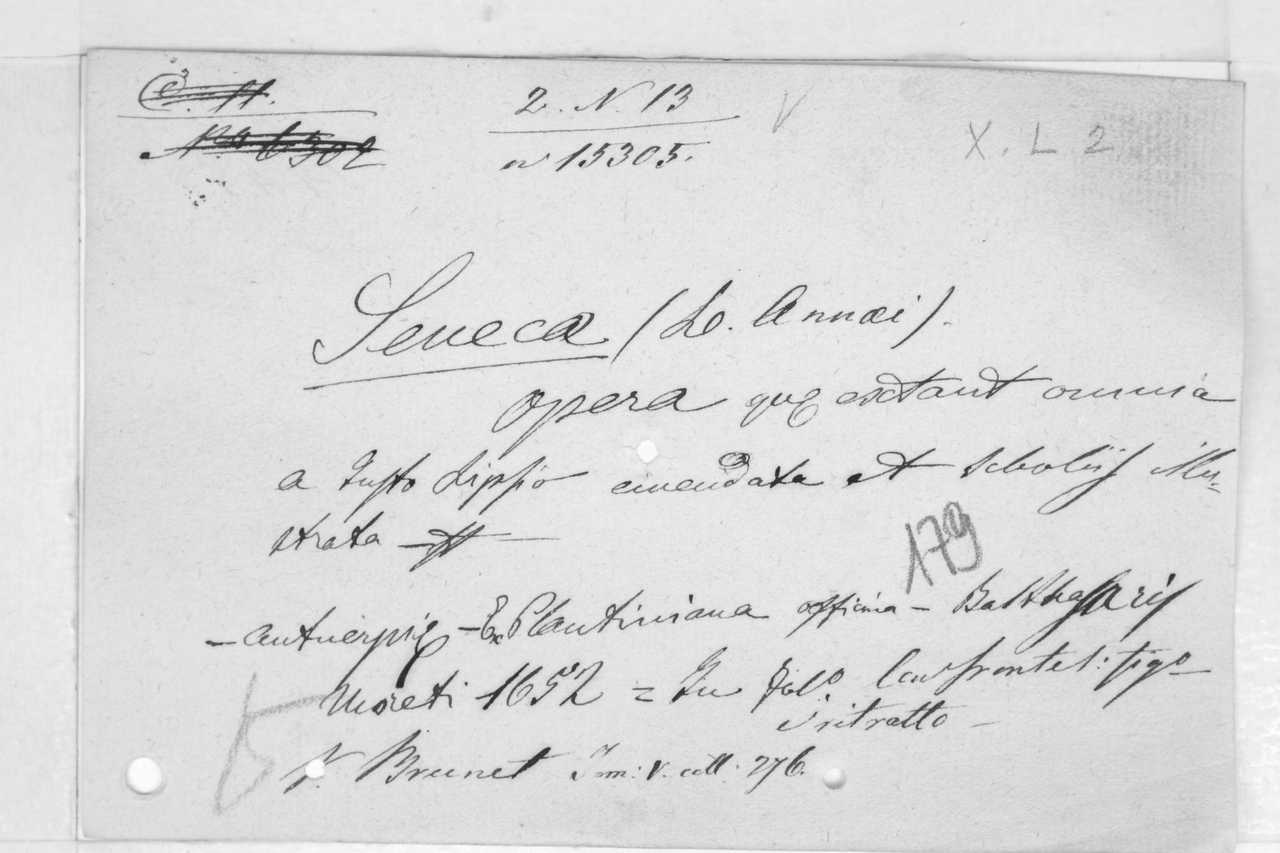 2. N. 13
nº 15305.
X. L 2
Seneca (L. Annæi).
opera quę extant omnia
a Justo Lipsio emendata et scholijs illu-
strata
179
- Antuerpię - Ex Plantiniana officina - Balthasaris
Moreti 1652 = In fol.º Con frontesp: figº
e ritratto -
V. Brunet Tom: V. coll: 276.